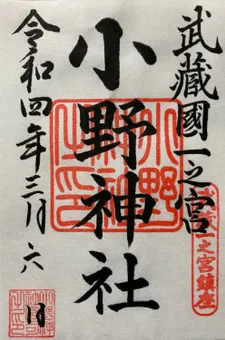 武藏國一之宮
小野神社
令和四年三月六日
武蔵一之宮鎮座